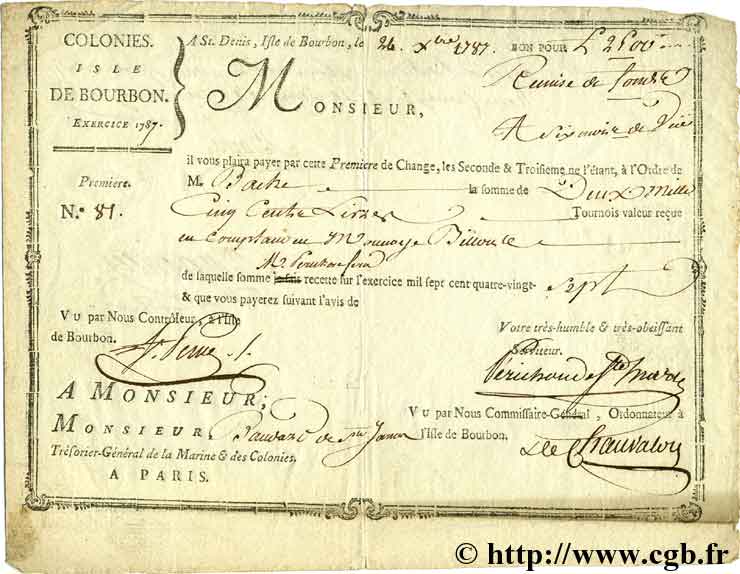 COLONIES.
ISLE
DE BOURBON.
EXERCICE 1787.
A St. Denis, Isle de Bourbon, le 24 Xbre 1787. BON POUR L
Remise de
A six mois de Vüe
MONSIEUR,
il vous plaira payer par cette Premiere de Change, les Seconde & Troisieme ne l'étant, à l'Ordre de
Premiere. M. la somme de Deux Mille
N.° 81. Cinq Cents Livres Tournois valeur reçue
en Comptant en Monnoye
M. Perichon
de laquelle somme je fais recette sur l'exercice mil sept cent quatre-vingt- Sept
& que vous payerez suivant l'avis de
VU par Nous Contrôleur, à l'Isle
de Bourbon.
Votre très-humble & très-obeissant
Serviteur.
Périchon de Ste Marie
A MONSIEUR;
MONSIEUR, de Ste James
Trésorier-Général de la Marine & des Colonies.
A PARIS.
VU par Nous Commissaire-Général, Ordonnateur à
l'Isle de Bourbon.
De Chauvalon
© http://www.cgb.fr